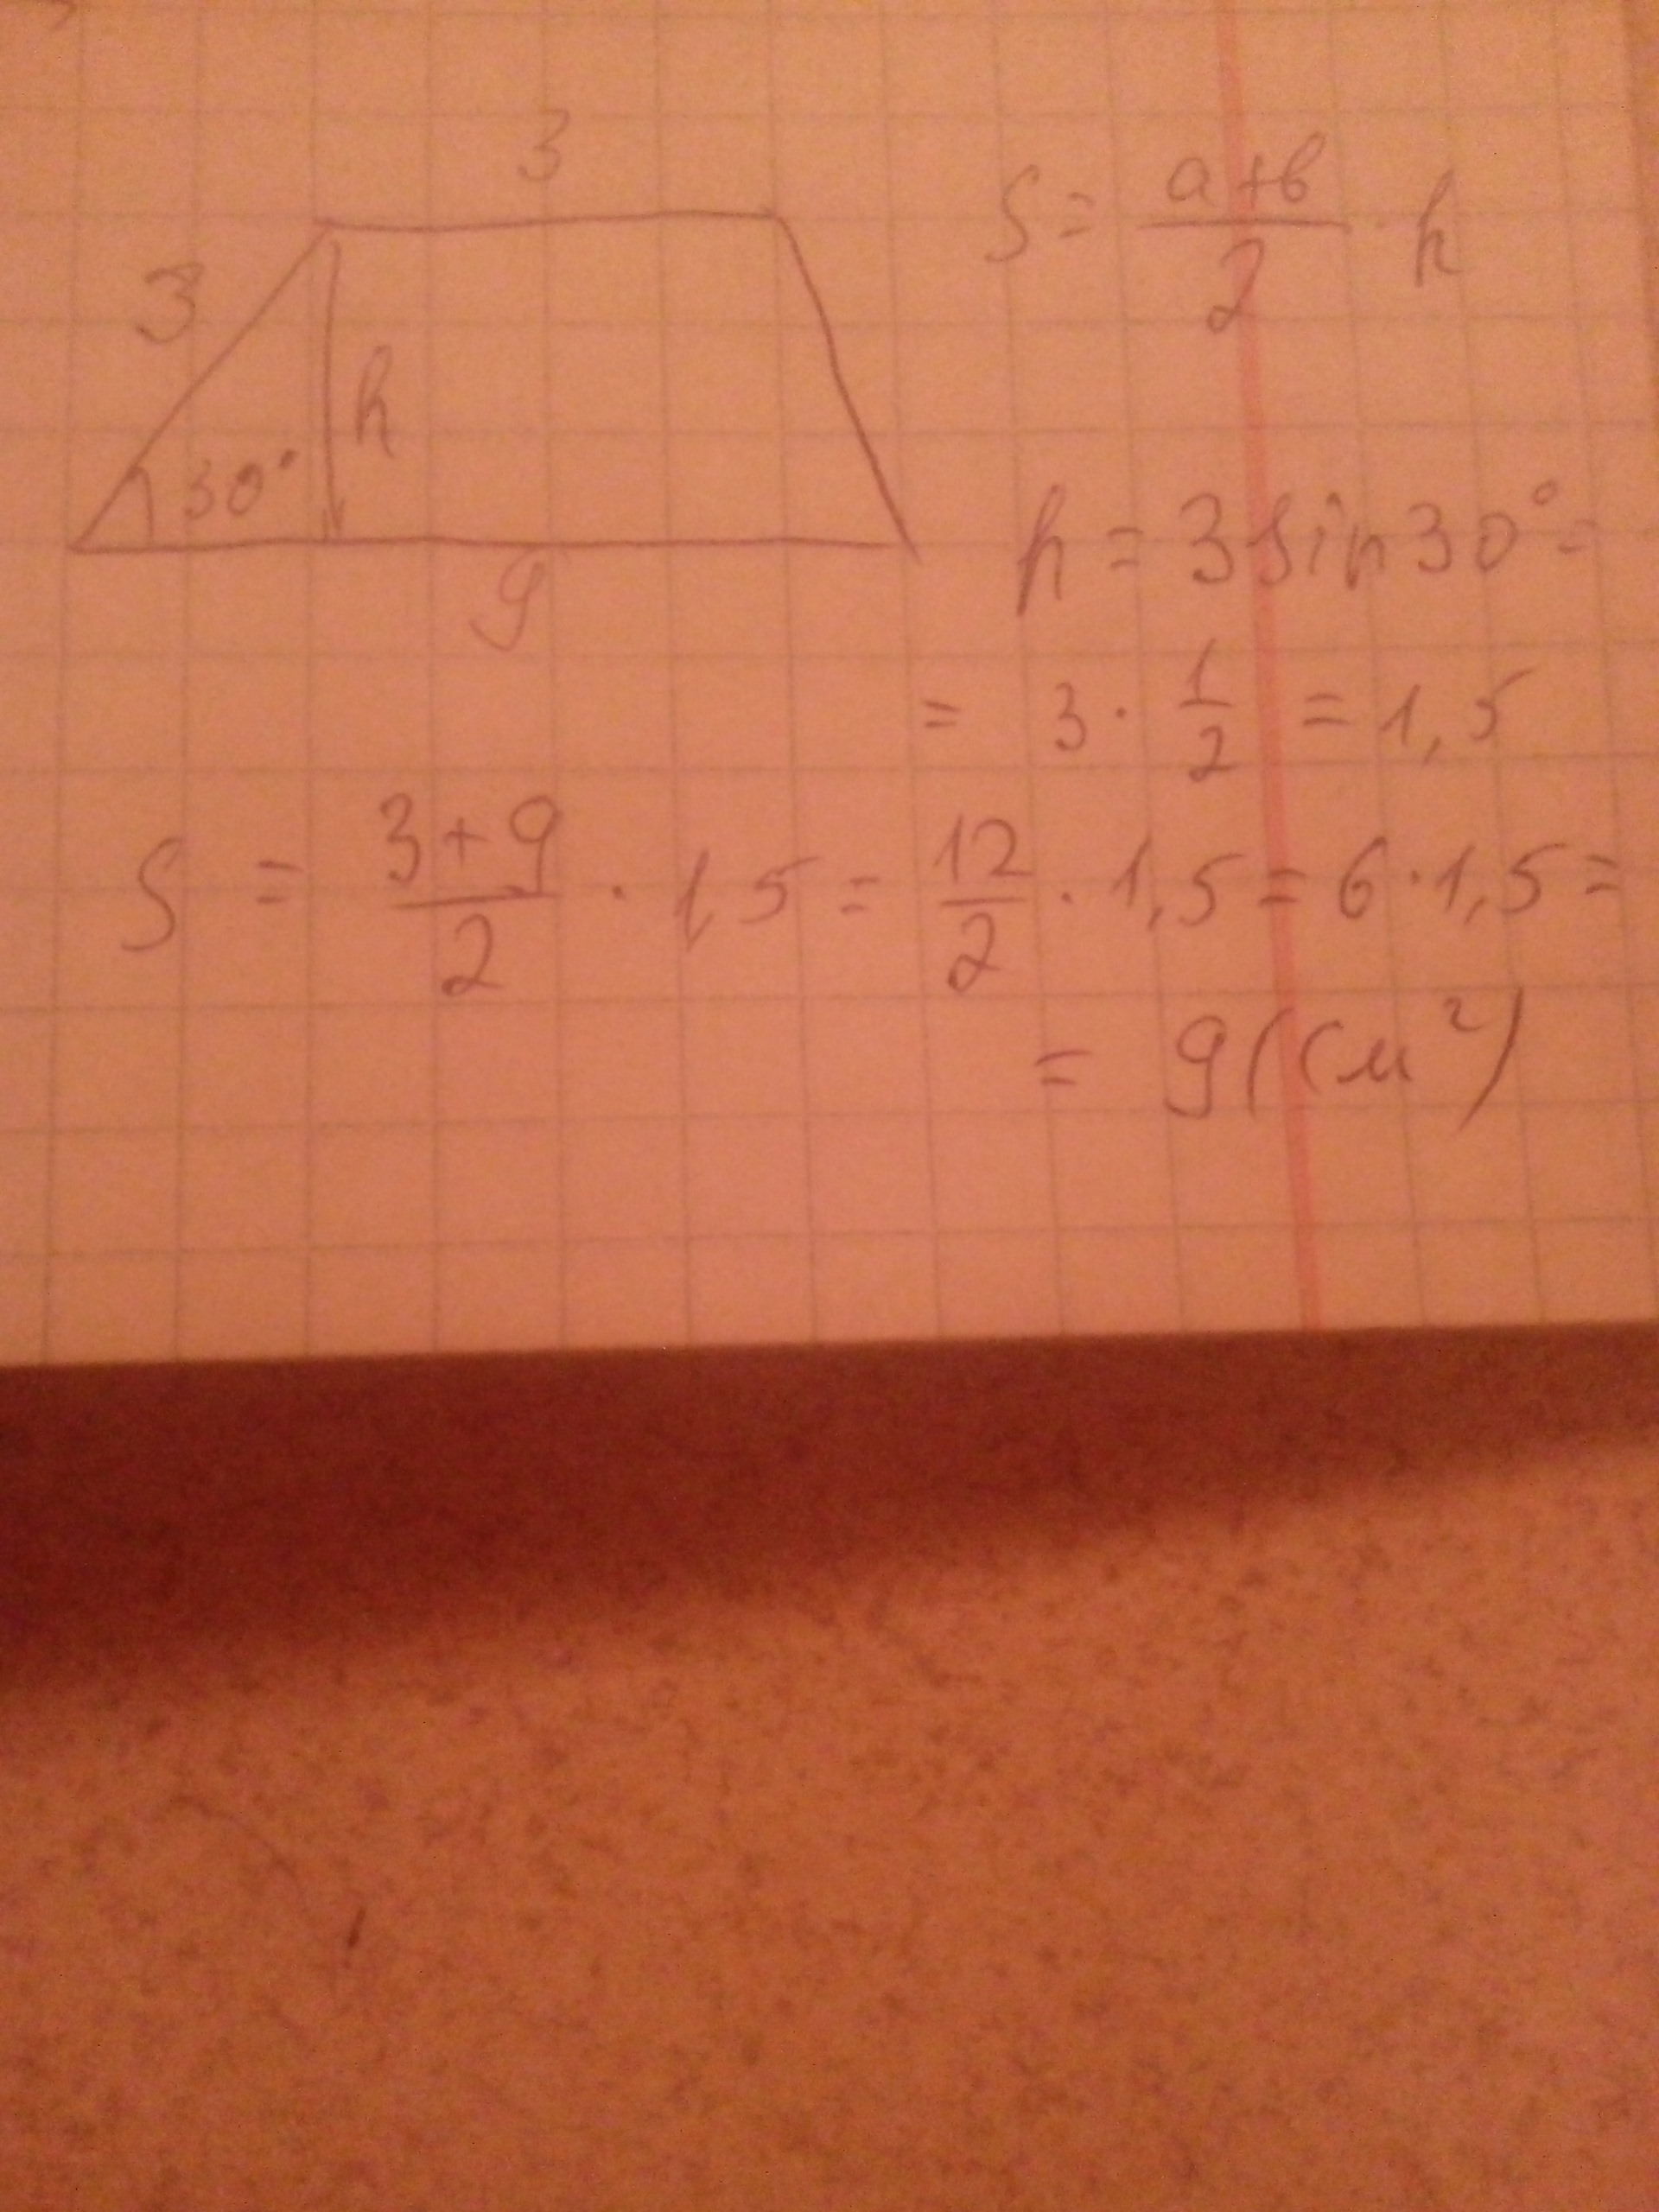 3
3
h
30°
9
S = (a+b)/2 · h
h = 3 sin30° =
= 3 · 1/2 = 1,5
S = (3+9)/2 · 1,5 = 12/2 · 1,5 = 6 · 1,5 =
= 9 (см²)